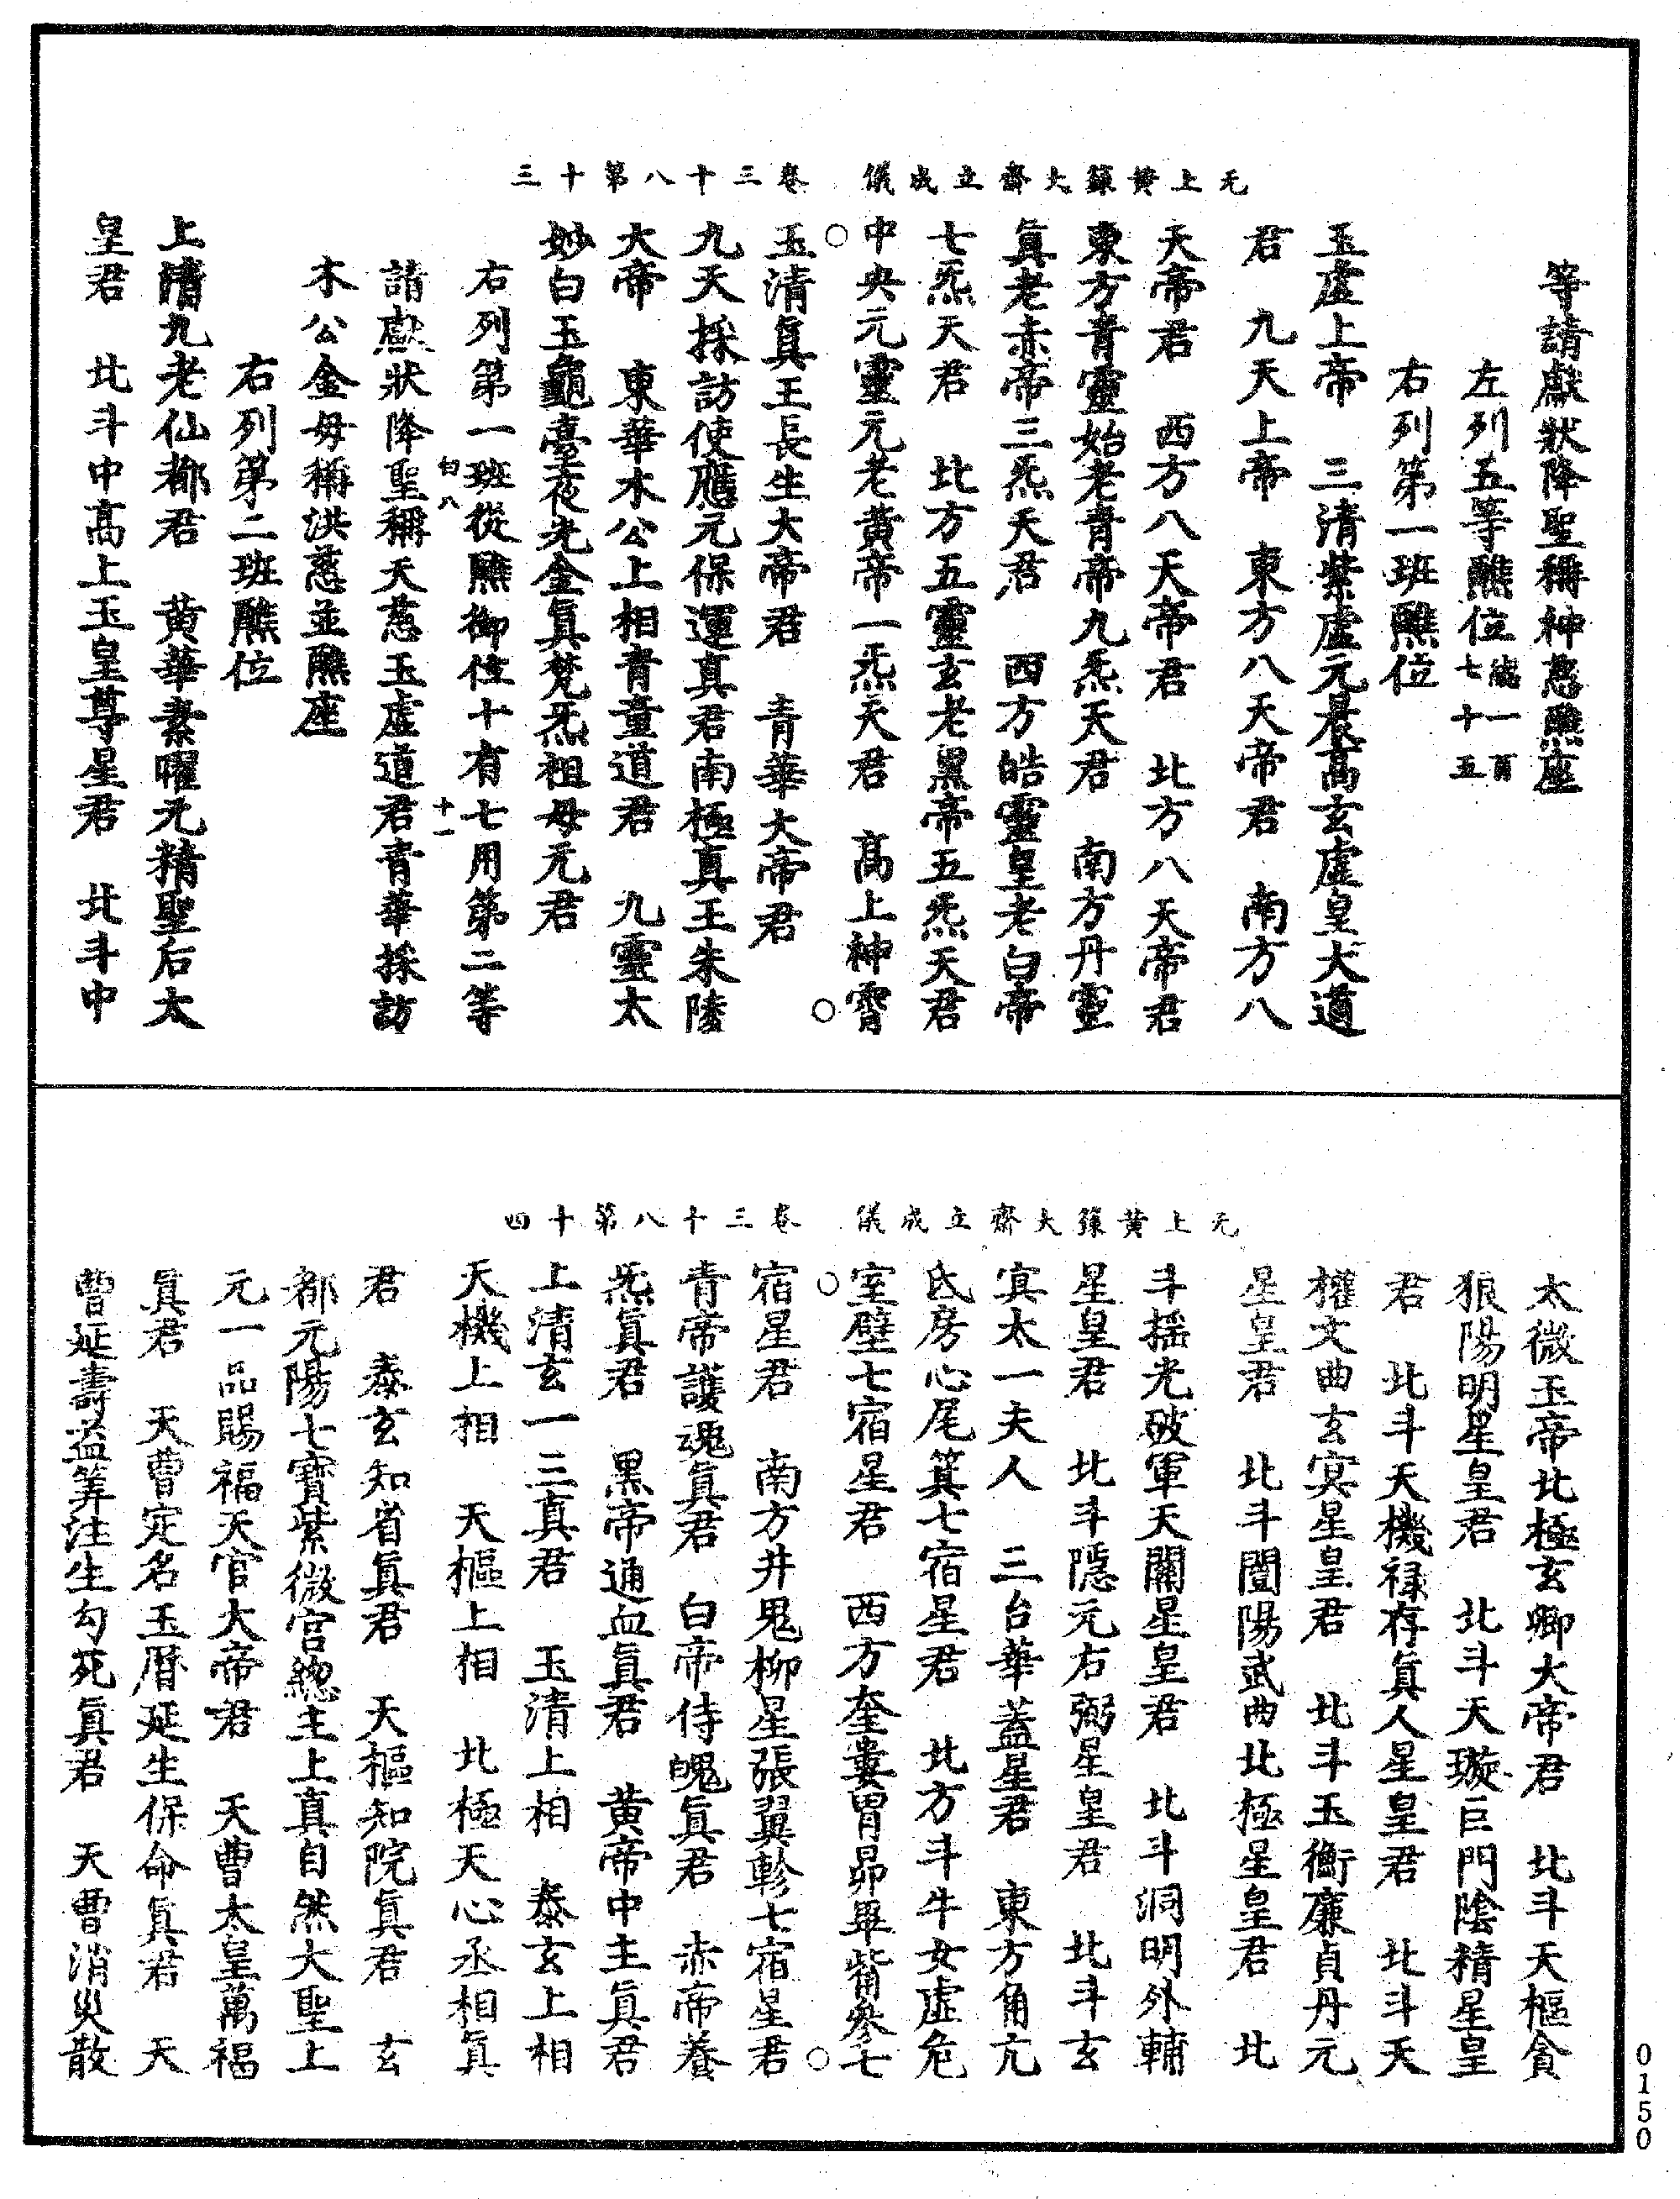 无上黃籙大齋立成儀　卷三十八第十三
等請獻狀降聖稱神慈醮座
左列五等醮位總一百七十五
右列第一班醮位
玉虛上帝　三清紫虛元晨高玄虛皇大道
君　九天上帝　東方八天帝君　南方八
天帝君　西方八天帝君　北方八天帝君
東方青靈始老青帝九炁天君　南方丹靈
眞老赤帝三炁天君　西方皓靈皇老白帝
七炁天君　北方五靈玄老黑帝五炁天君
中央元靈元老黃帝一炁天君　高上神霄
玉清眞王長生大帝君　青華大帝君
九天採訪使應元保運真君南極真王朱陵
大帝　東華木公上相青童道君　九靈太
妙白玉龜臺夜光金眞梵炁祖母元君
右列第一班從醮御位十有七用第二等
白八　十一
請獻狀降聖稱天慈玉虛道君青華採訪
木公金母稱洪慈並醮座
右列第二班醮位
上清九老仙都君　黃華素曜元精聖后太
皇君　北斗中高上玉皇尊星君　北斗中
无上黃籙大齋立成儀　卷三十八第十四
太微玉帝北極玄卿大帝君　北斗天樞貪
狼陽明星皇君　北斗天璇巨門陰精星皇
君　北斗天機祿存眞人星皇君　北斗天
權文曲玄冥星皇君　北斗玉衡廉貞丹元
星皇君　北斗闓陽武曲北極星皇君　北
斗搖光破軍天關星皇君　北斗洞明外輔
星皇君　北斗隱元右弼星皇君　北斗玄
冥太一夫人　三台華蓋星君　東方角亢
氐房心尾箕七宿星君　北方斗牛女虛危
室壁七宿星君　西方奎婁胃昴畢觜參七
宿星君　南方井鬼柳星張翼軫七宿星君
青帝護魂眞君　白帝侍魄眞君　赤帝養
炁眞君　黑帝通血眞君　黃帝中主眞君
上清玄一三真君　玉清上相　泰玄上相
天機上相　天樞上相　北極天心丞相眞
君　泰玄知省眞君　天樞知院眞君　玄
都元陽七寶紫微宮總主上真自然大聖上
元一品賜福天官大帝君　天曹太皇萬福
眞君　天曹定名玉曆延生保命眞君　天
曹延壽益筭注生勾死眞君　天曹消災散
0150